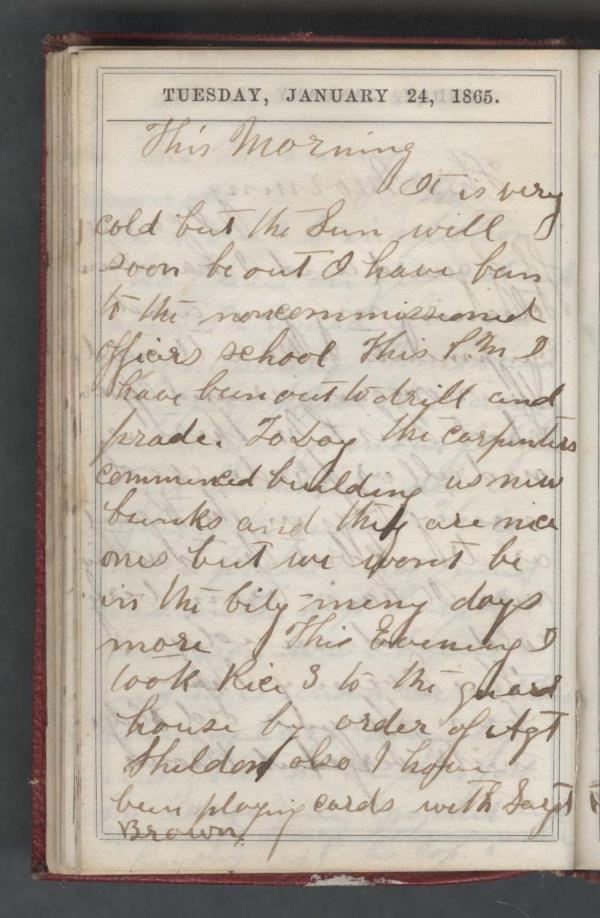 TUESDAY, JANUARY 24, 1865.
This Morning
It is very
cold but the Sun will
soon be out I have ben
to the noncommissioned
officers school This P.M I
have been out to drill and
prade. To Day the carpinters
commenced building us new
bunks and they are nice
ones but we wont be
in the City meny days
more This Evening I
took Rice 3 to the guard
house by order of Agt
Sheldon also I have
been playing cards with Sargt
Brown.